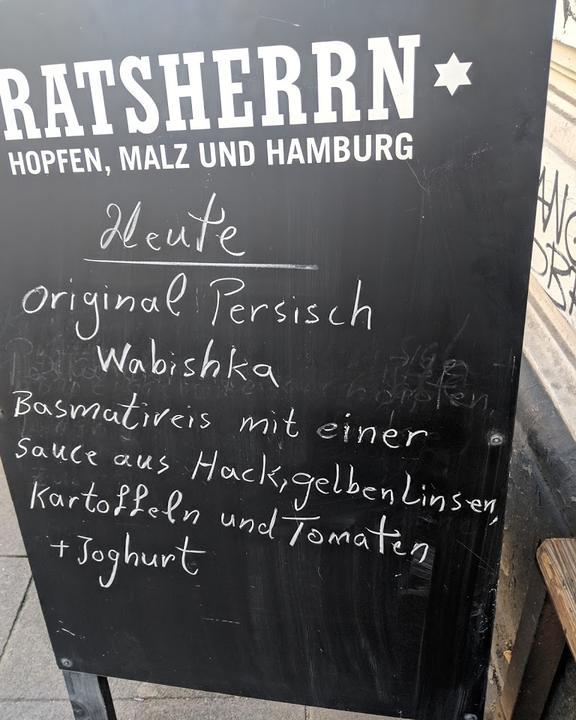 RATSHERRN
HOPFEN, MALZ UND HAMBURG
Heute
Original Persisch
Wabishka
Basmatireis mit einer
Sauce aus Hack, gelben Linsen,
Kartoffeln und Tomaten
+ Joghurt